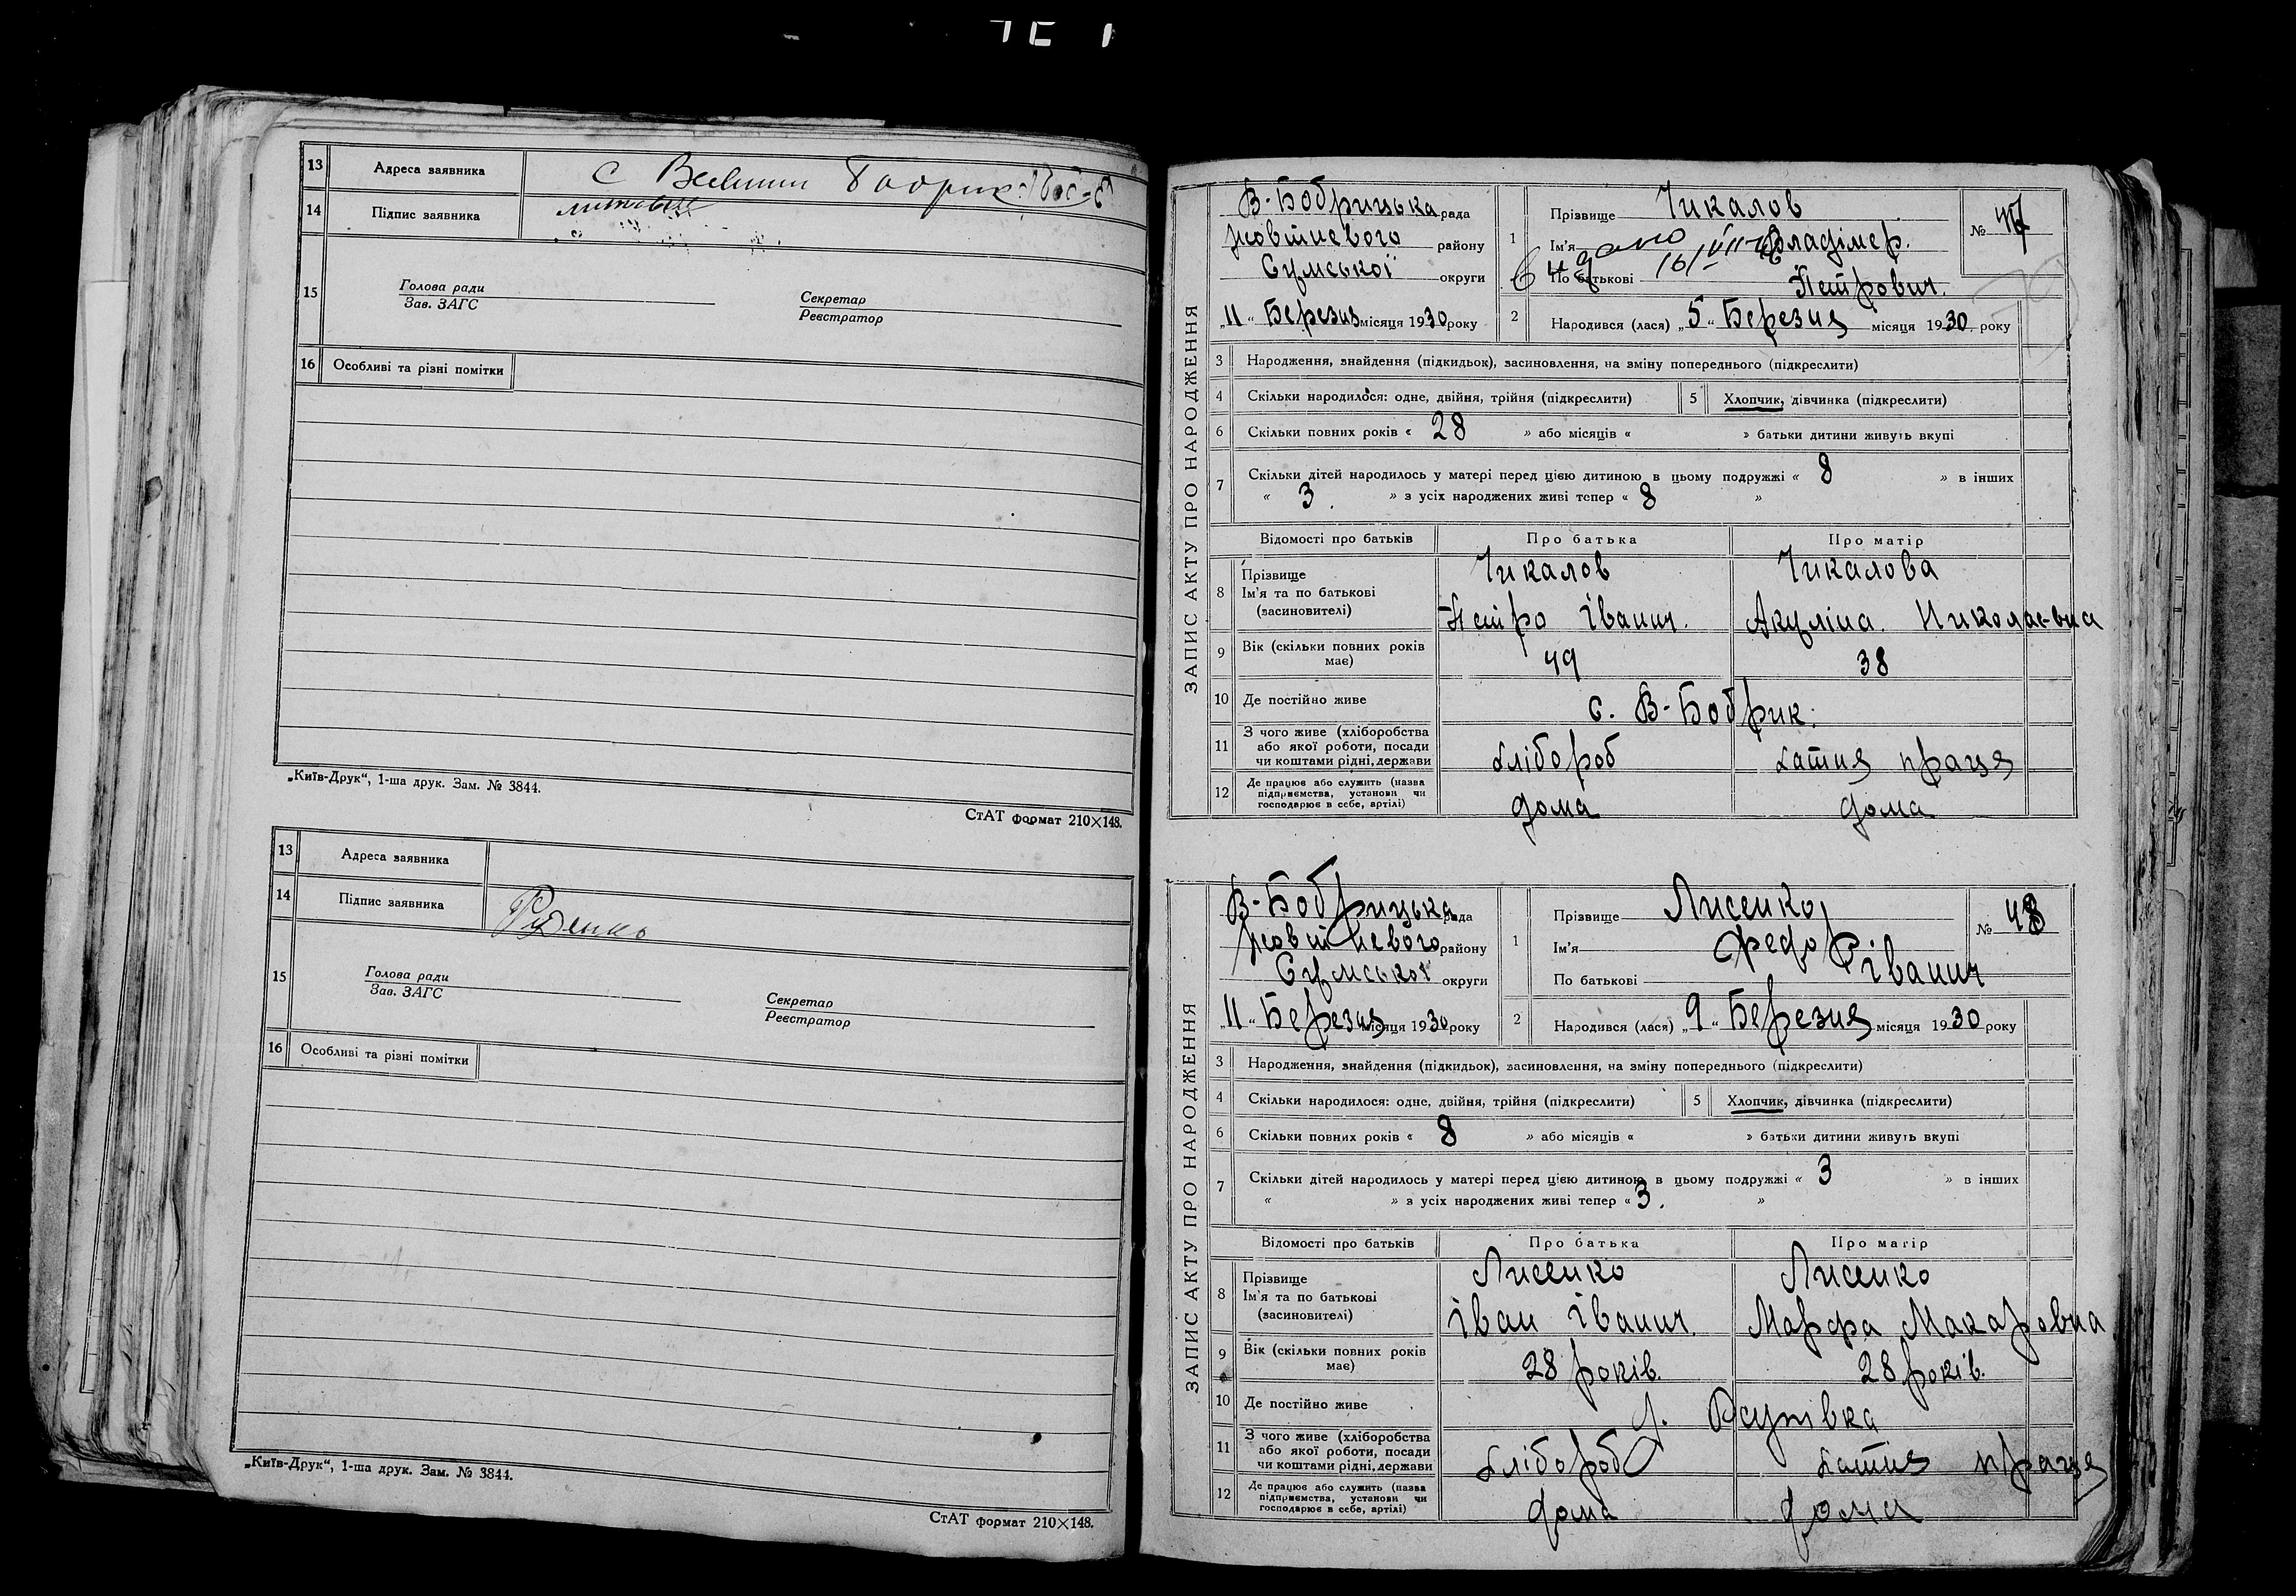 13 Адреса заявника с Велики Бобрик
14 Підпис заявника
15
Голова ради
Зав. ЗАГС
Секретар
Реєстратор
16 Особливі та різні помітки
„Київ-Друк“, 1-ша друк. Зам. № 3844.
СтАТ формат 210×148.
13 Адреса заявника
14 Підпис заявника Руденко
15
Голова ради
Зав. ЗАГС
Секретар
Реєстратор
16 Особливі та різні помітки
„Київ-Друк“, 1-ша друк. Зам. № 3844.
СтАТ формат 210×148.
ЗАПИС АКТУ ПРО НАРОДЖЕННЯ
В-Бобрицька рада
Жовтневого району
Сумської округи
„11“ Березня місяця 1930 року
1 Прізвище Чикалов
Ім'я Владімер.
По батькові Петрович.
№ 47
2 Народився (лася) „5“ Березня місяця 1930 року
3 Народження, знайдення (підкидьок), засиновлення, на зміну попереднього (підкреслити)
4 Скільки народилося: одне, двійня, трійня (підкреслити) 5 Хлопчик, дівчинка (підкреслити)
6 Скільки повних років « 28 » або місяців « » батьки дитини живуть вкупі
7 Скільки дітей народилось у матері перед цією дитиною в цьому подружжі « 8 » в інших
« 3 » з усіх народжених живі тепер « 8 »
Відомості про батьків Про батька Про матір
8 Прізвище Чикалов Чикалова
Ім'я та по батькові
(засиновителі) Петро Іванич. Акуліна. Николаевна
9 Вік (скільки повних років має) 49 38
10 Де постійно живе с. В-Бобрик.
11 З чого живе (хліборобства
або якої роботи, посади
чи коштами рідні, держави хлібороб хатня праця
12 Де працює або служить (назва
підприємства, установи чи
господарює в себе, артілі) дома дома
ЗАПИС АКТУ ПРО НАРОДЖЕННЯ
В-Бобрицька рада
Жовтневого району
Сумської округи
„11“ Березня місяця 1930 року
1 Прізвище Лисенко
Ім'я Федор
По батькові Іванич
№ 48
2 Народився (лася) „9“ Березня місяця 1930 року
3 Народження, знайдення (підкидьок), засиновлення, на зміну попереднього (підкреслити)
4 Скільки народилося: одне, двійня, трійня (підкреслити) 5 Хлопчик, дівчинка (підкреслити)
6 Скільки повних років « 8 » або місяців « » батьки дитини живуть вкупі
7 Скільки дітей народилось у матері перед цією дитиною в цьому подружжі « 3 » в інших
« » з усіх народжених живі тепер « 3. »
Відомості про батьків Про батька Про матір
8 Прізвище Лисенко Лисенко
Ім'я та по батькові
(засиновителі) Іван Іванич. Марфа Макаровна
9 Вік (скільки повних років має) 28 років. 28 років.
10 Де постійно живе
11 З чого живе (хліборобства
або якої роботи, посади
чи коштами рідні, держави хлібороб хатня праця
12 Де працює або служить (назва
підприємства, установи чи
господарює в себе, артілі) дома дома